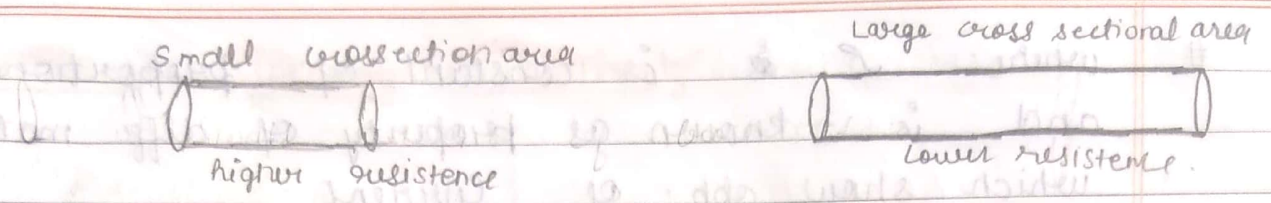 Small crossection area
higher resistence
Large cross sectional area
Lower resistence.